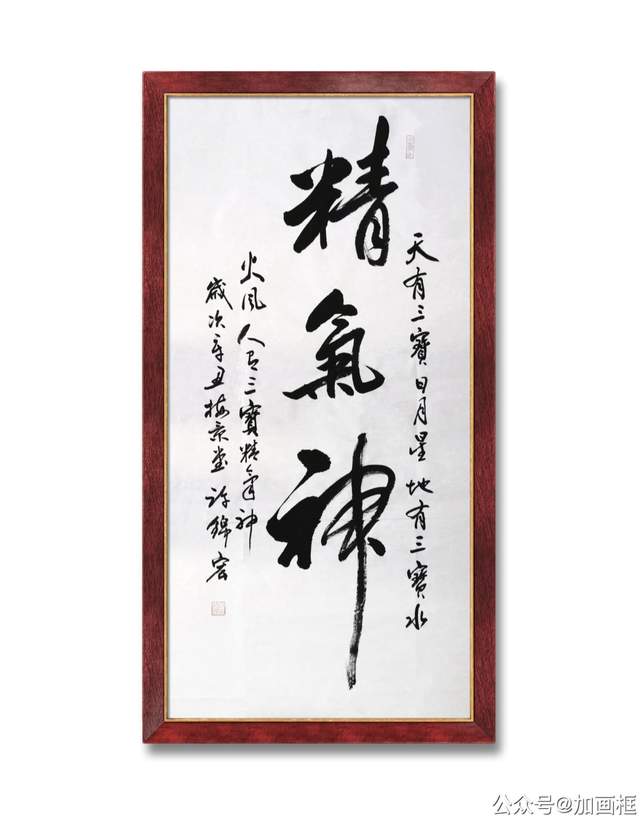 精氣神
天有三寶日月星地有三寶水
火風人有三寶精氣神
歲次辛丑梅景堂許錦宏
公众号@加画框